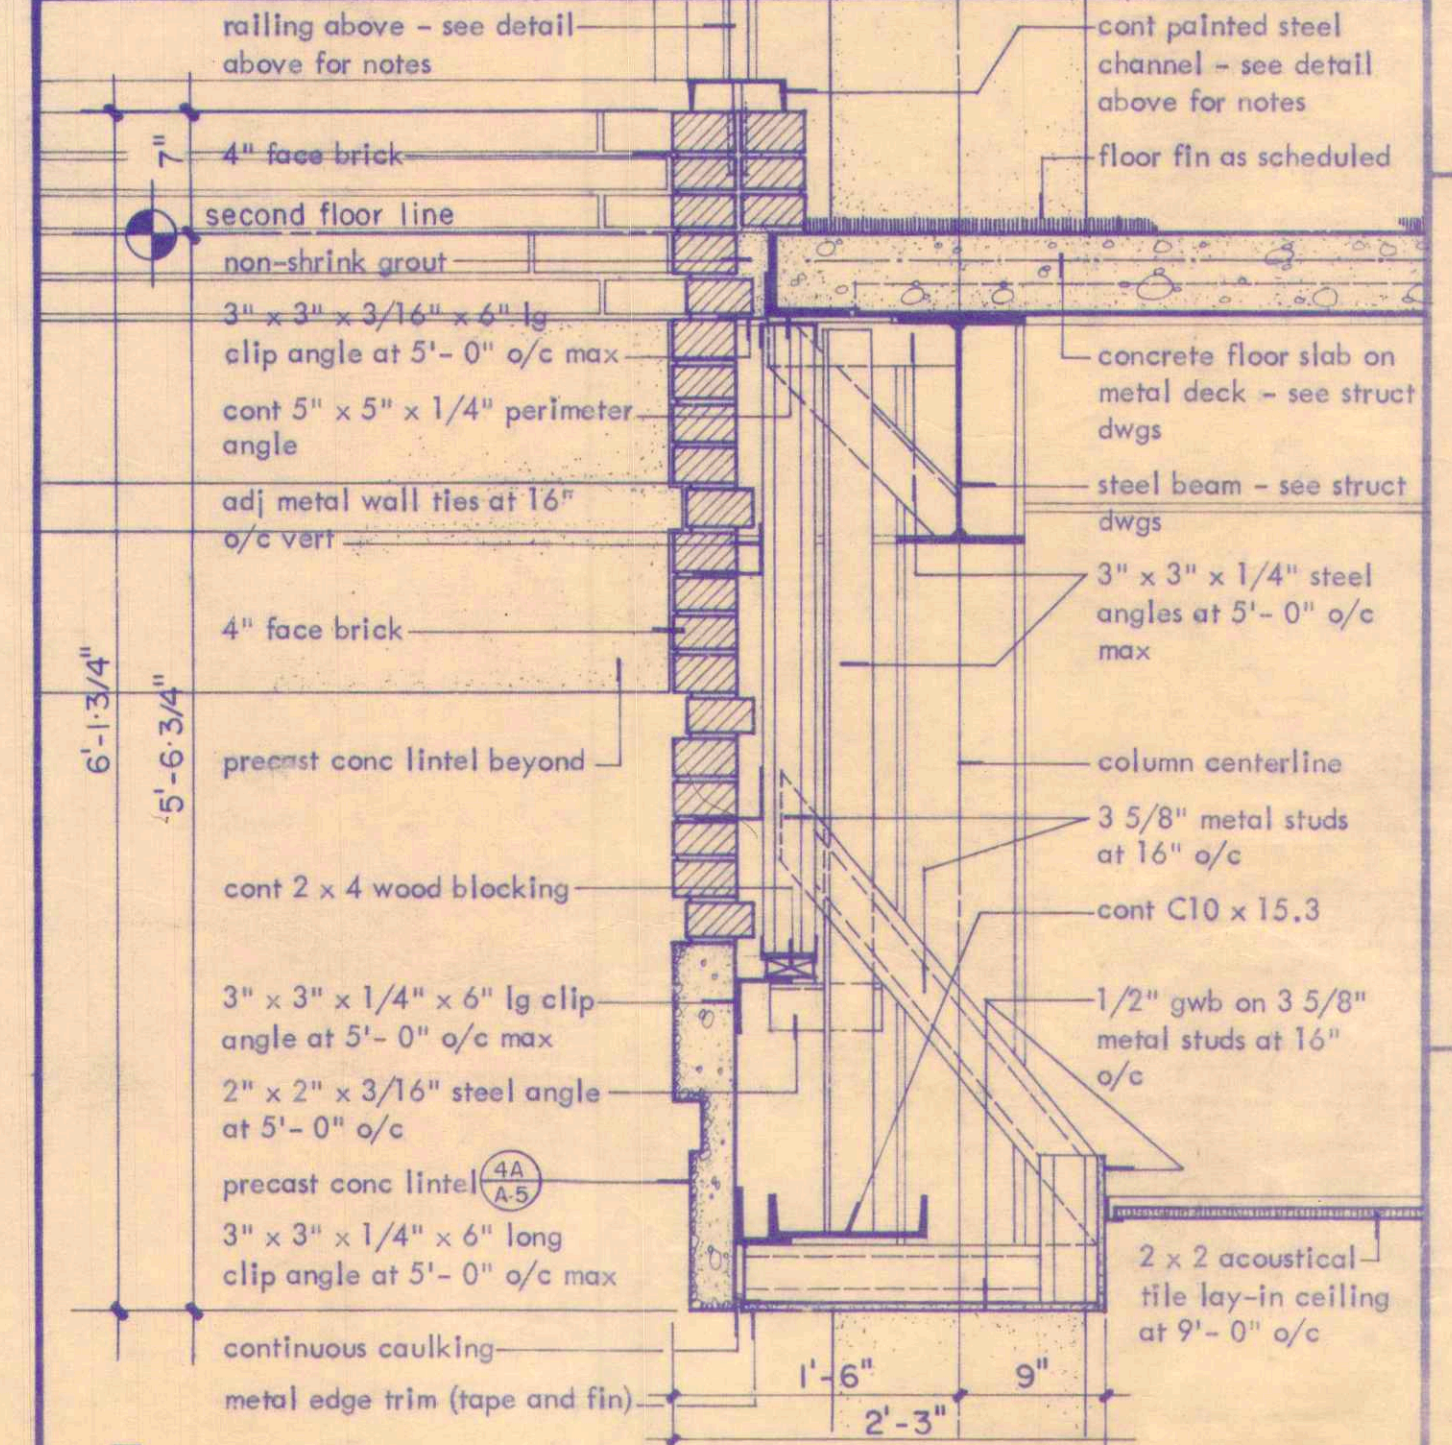 railing above - see detail
above for notes
7"
4" face brick
second floor line
non-shrink grout
3" x 3" x 3/16" x 6" lg
clip angle at 5'- 0" o/c max
cont 5" x 5" x 1/4" perimeter
angle
adj metal wall ties at 16"
o/c vert
4" face brick
6'-1·3/4"
5'-6·3/4"
precast conc lintel beyond
cont 2 x 4 wood blocking
3" x 3" x 1/4" x 6" lg clip
angle at 5'- 0" o/c max
2" x 2" x 3/16" steel angle
at 5'- 0" o/c
precast conc lintel
4A
A-5
3" x 3" x 1/4" x 6" long
clip angle at 5'- 0" o/c max
continuous caulking
metal edge trim (tape and fin)
cont painted steel
channel - see detail
above for notes
floor fin as scheduled
concrete floor slab on
metal deck - see struct
dwgs
steel beam - see struct
dwgs
3" x 3" x 1/4" steel
angles at 5'- 0" o/c
max
column centerline
3 5/8" metal studs
at 16" o/c
cont C10 x 15.3
1/2" gwb on 3 5/8"
metal studs at 16"
o/c
2 x 2 acoustical
tile lay-in ceiling
at 9'- 0" o/c
1'-6"
9"
2'-3"